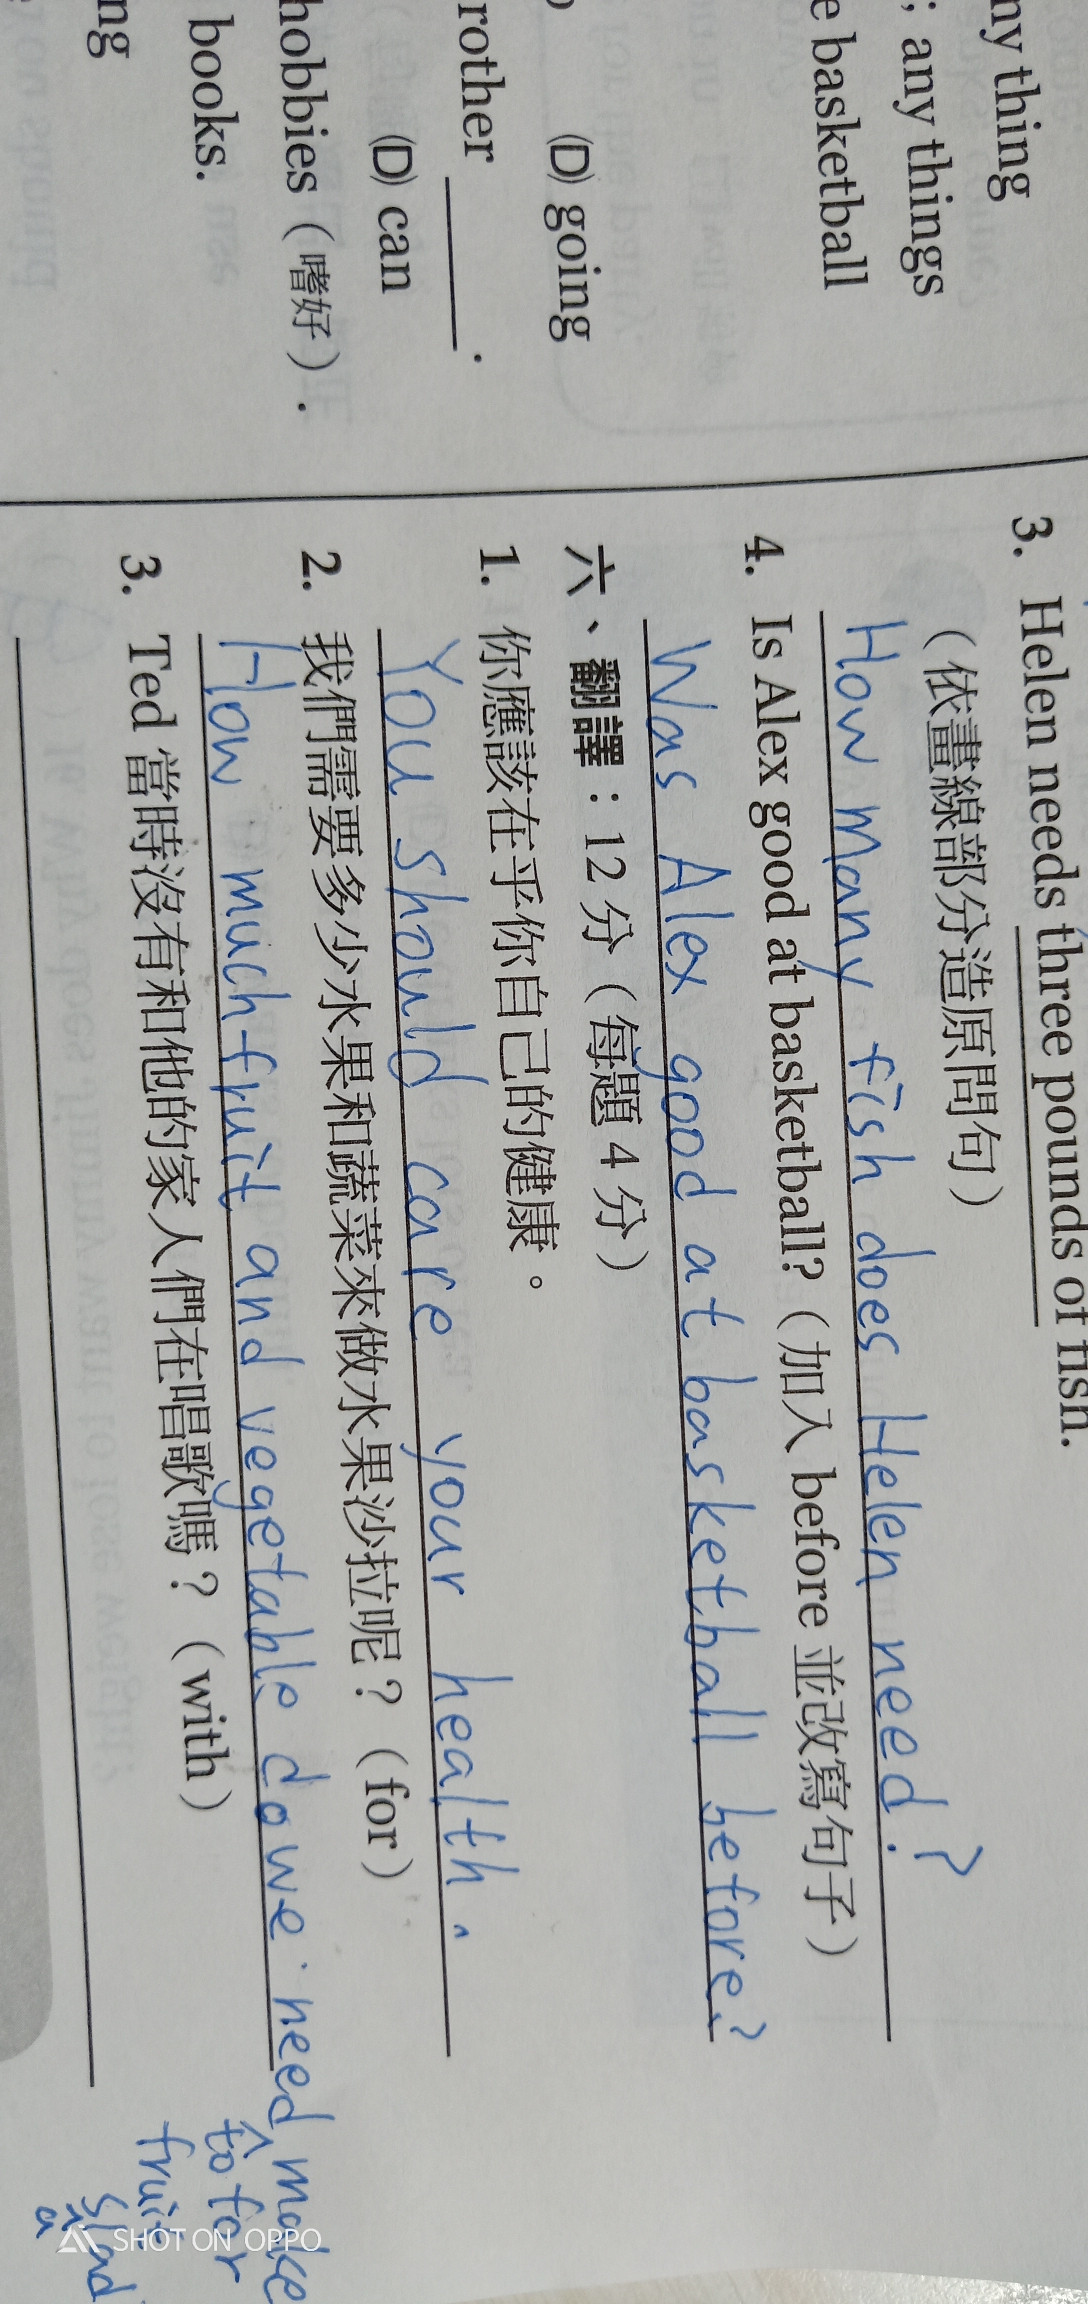 ny thing
; any things
e basketball
(D) going
rother ______.
(D) can
hobbies（嗜好）.
books.
ng
3. Helen needs three pounds of fish.
（依畫線部分造原問句）
How many fish does Helen need?
4. Is Alex good at basketball?（加入 before 並改寫句子）
Was Alex good at basketball before?
六、翻譯：12 分（每題 4 分）
1. 你應該在乎你自己的健康。
You should care your health.
2. 我們需要多少水果和蔬菜來做水果沙拉呢？（for）
How much fruit and vegetable do we need make
to for
fruit
slad
a
3. Ted 當時沒有和他的家人們在唱歌嗎？（with）
SHOT ON OPPO